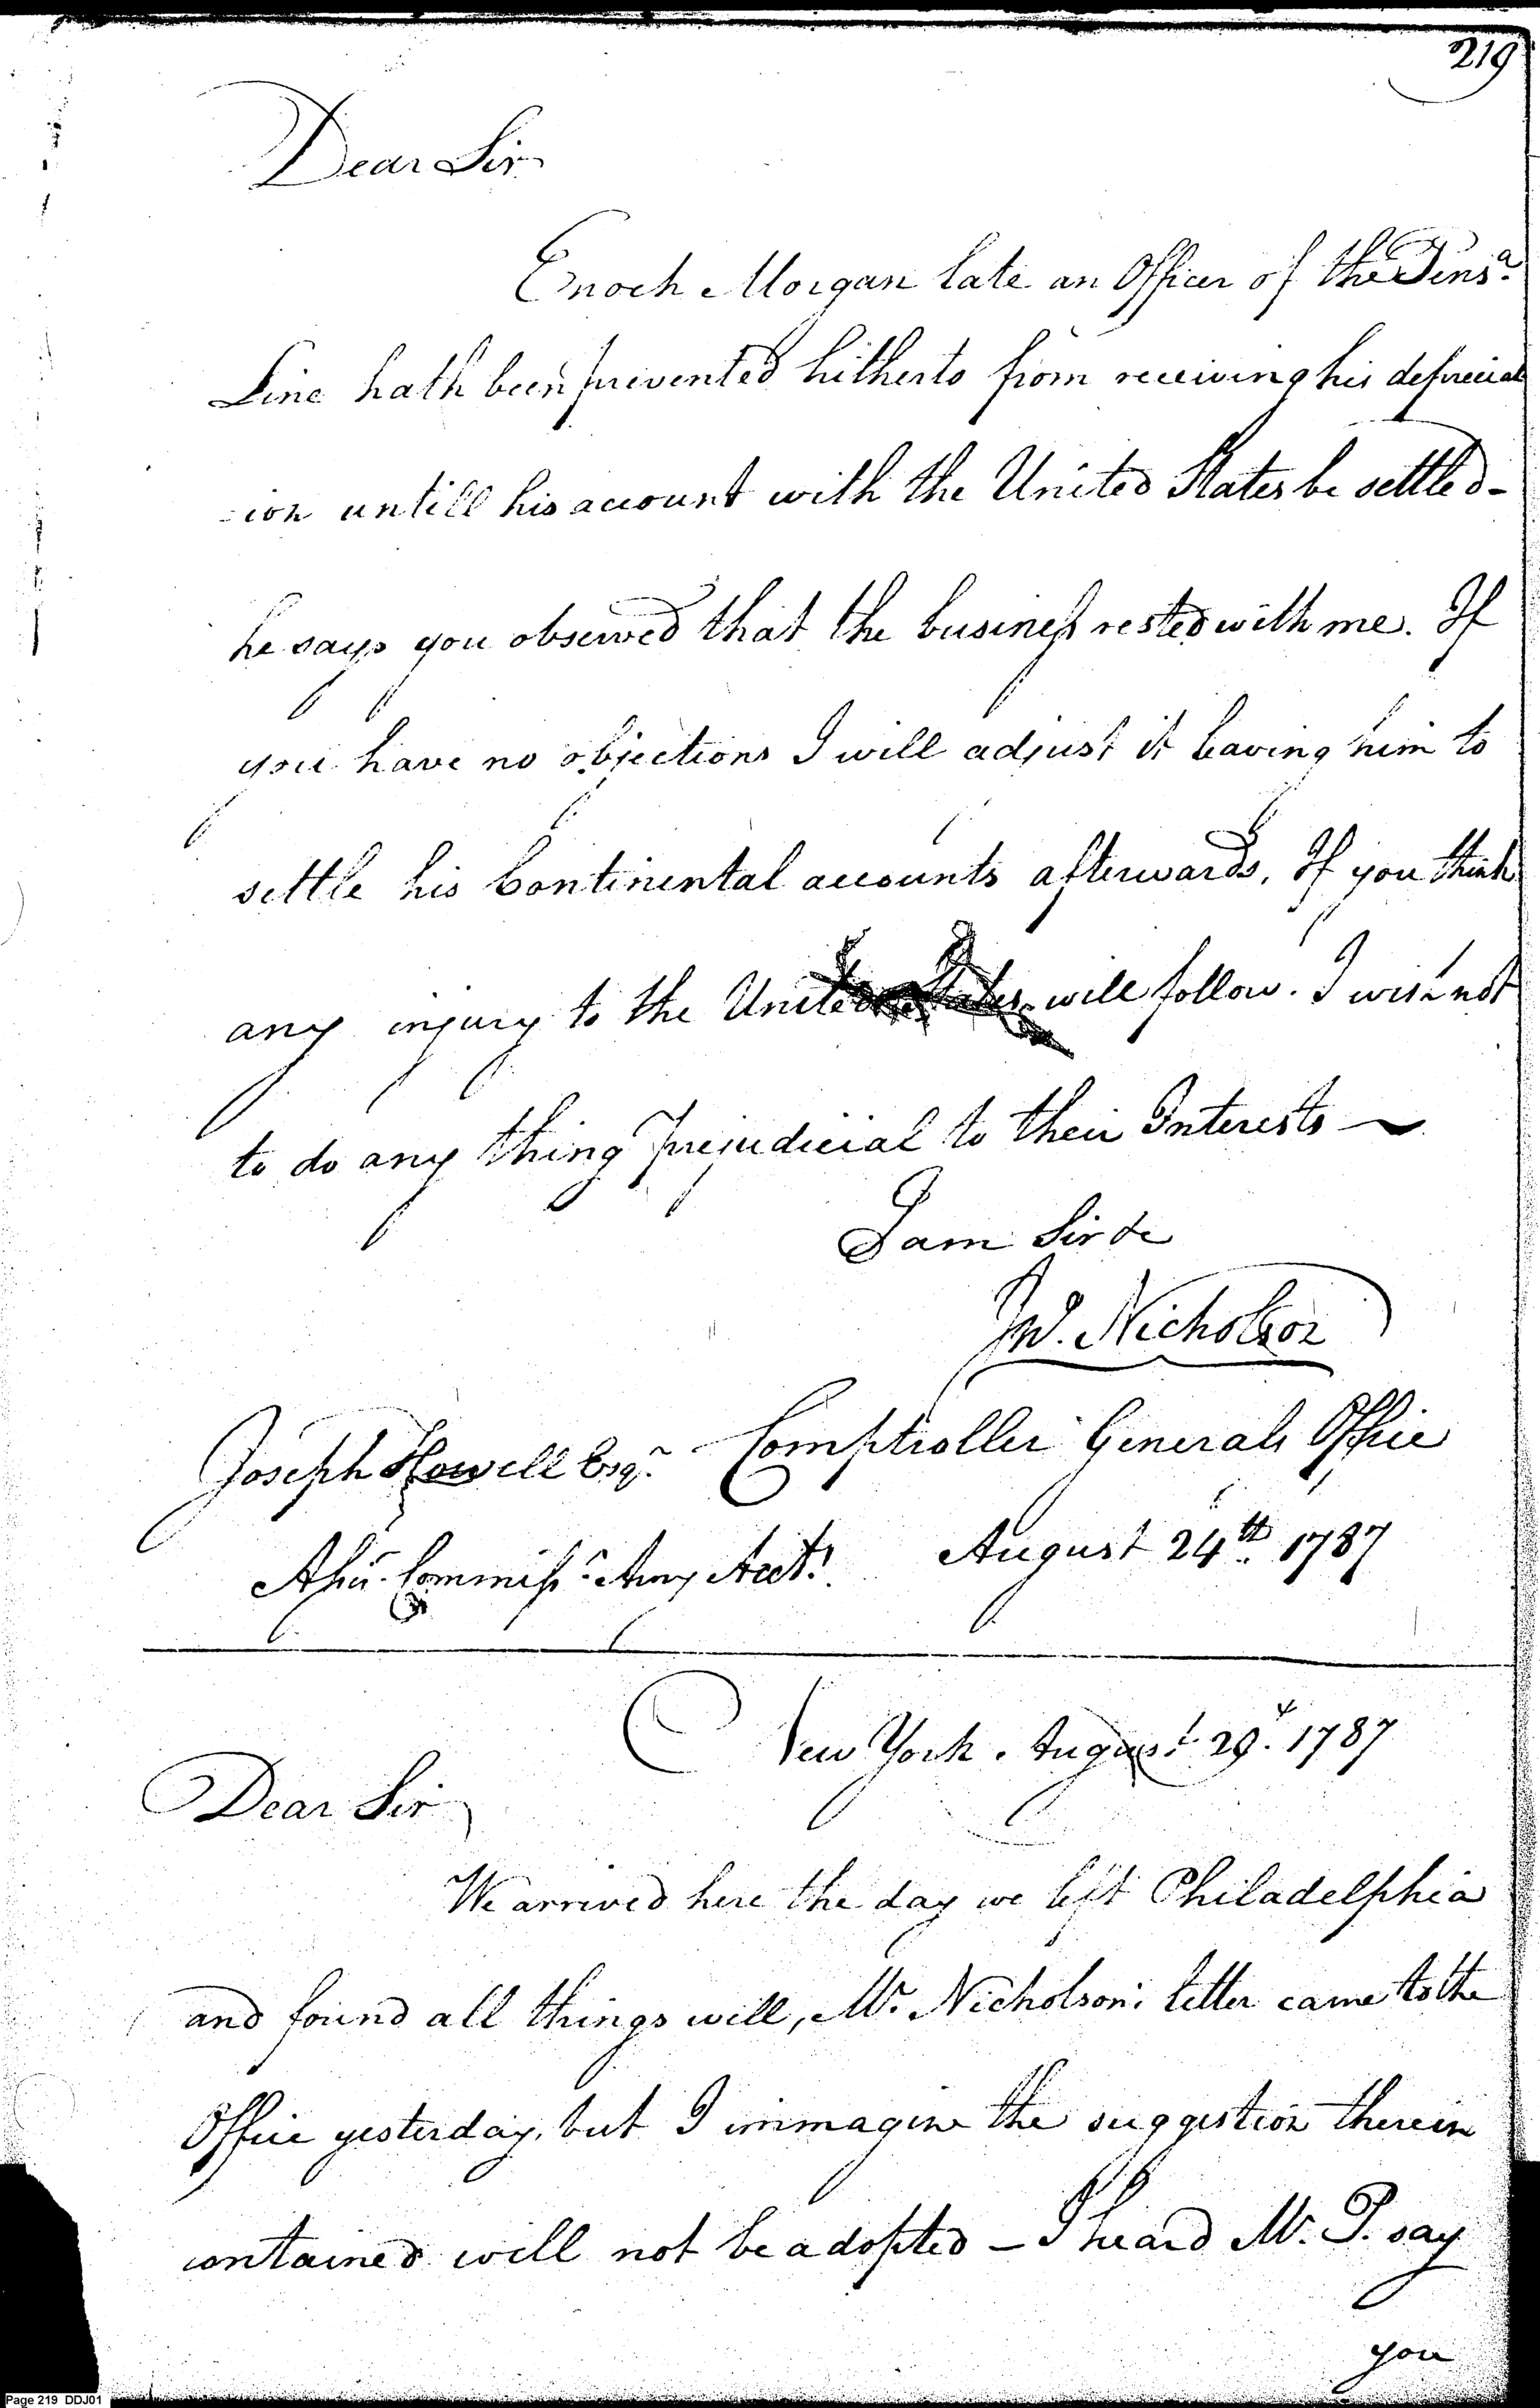 219
Dear Sir
Enoch Morgan late an Officer of the Pensa.
Line hath been prevented hitherto from receiving his depreciat
-ion untill his account with the United States be settled -
he says you observed that the business rested with me. If
you have no objections I will adjust it leaving him to
settle his Continental accounts afterwards. If you think
any injury to the United States will follow. I wish not
to do any thing Prejudicial to their Interests ~
I am Sir &c
Jno. Nicholson
Joseph Howell Esqr. Comptroller Generals Office
Assn. Commissr. Army Acts. August 24th. 1787
New York. August 29. 1787
Dear Sir
We arrived here the day we left Philadelphia
and found all things well, Mr. Nicholsons letter came to the
Office yesterday, but I immagine the suggestion therein
contained will not be adopted - I heard Mr. P. say
you
Page 219 DDJ01